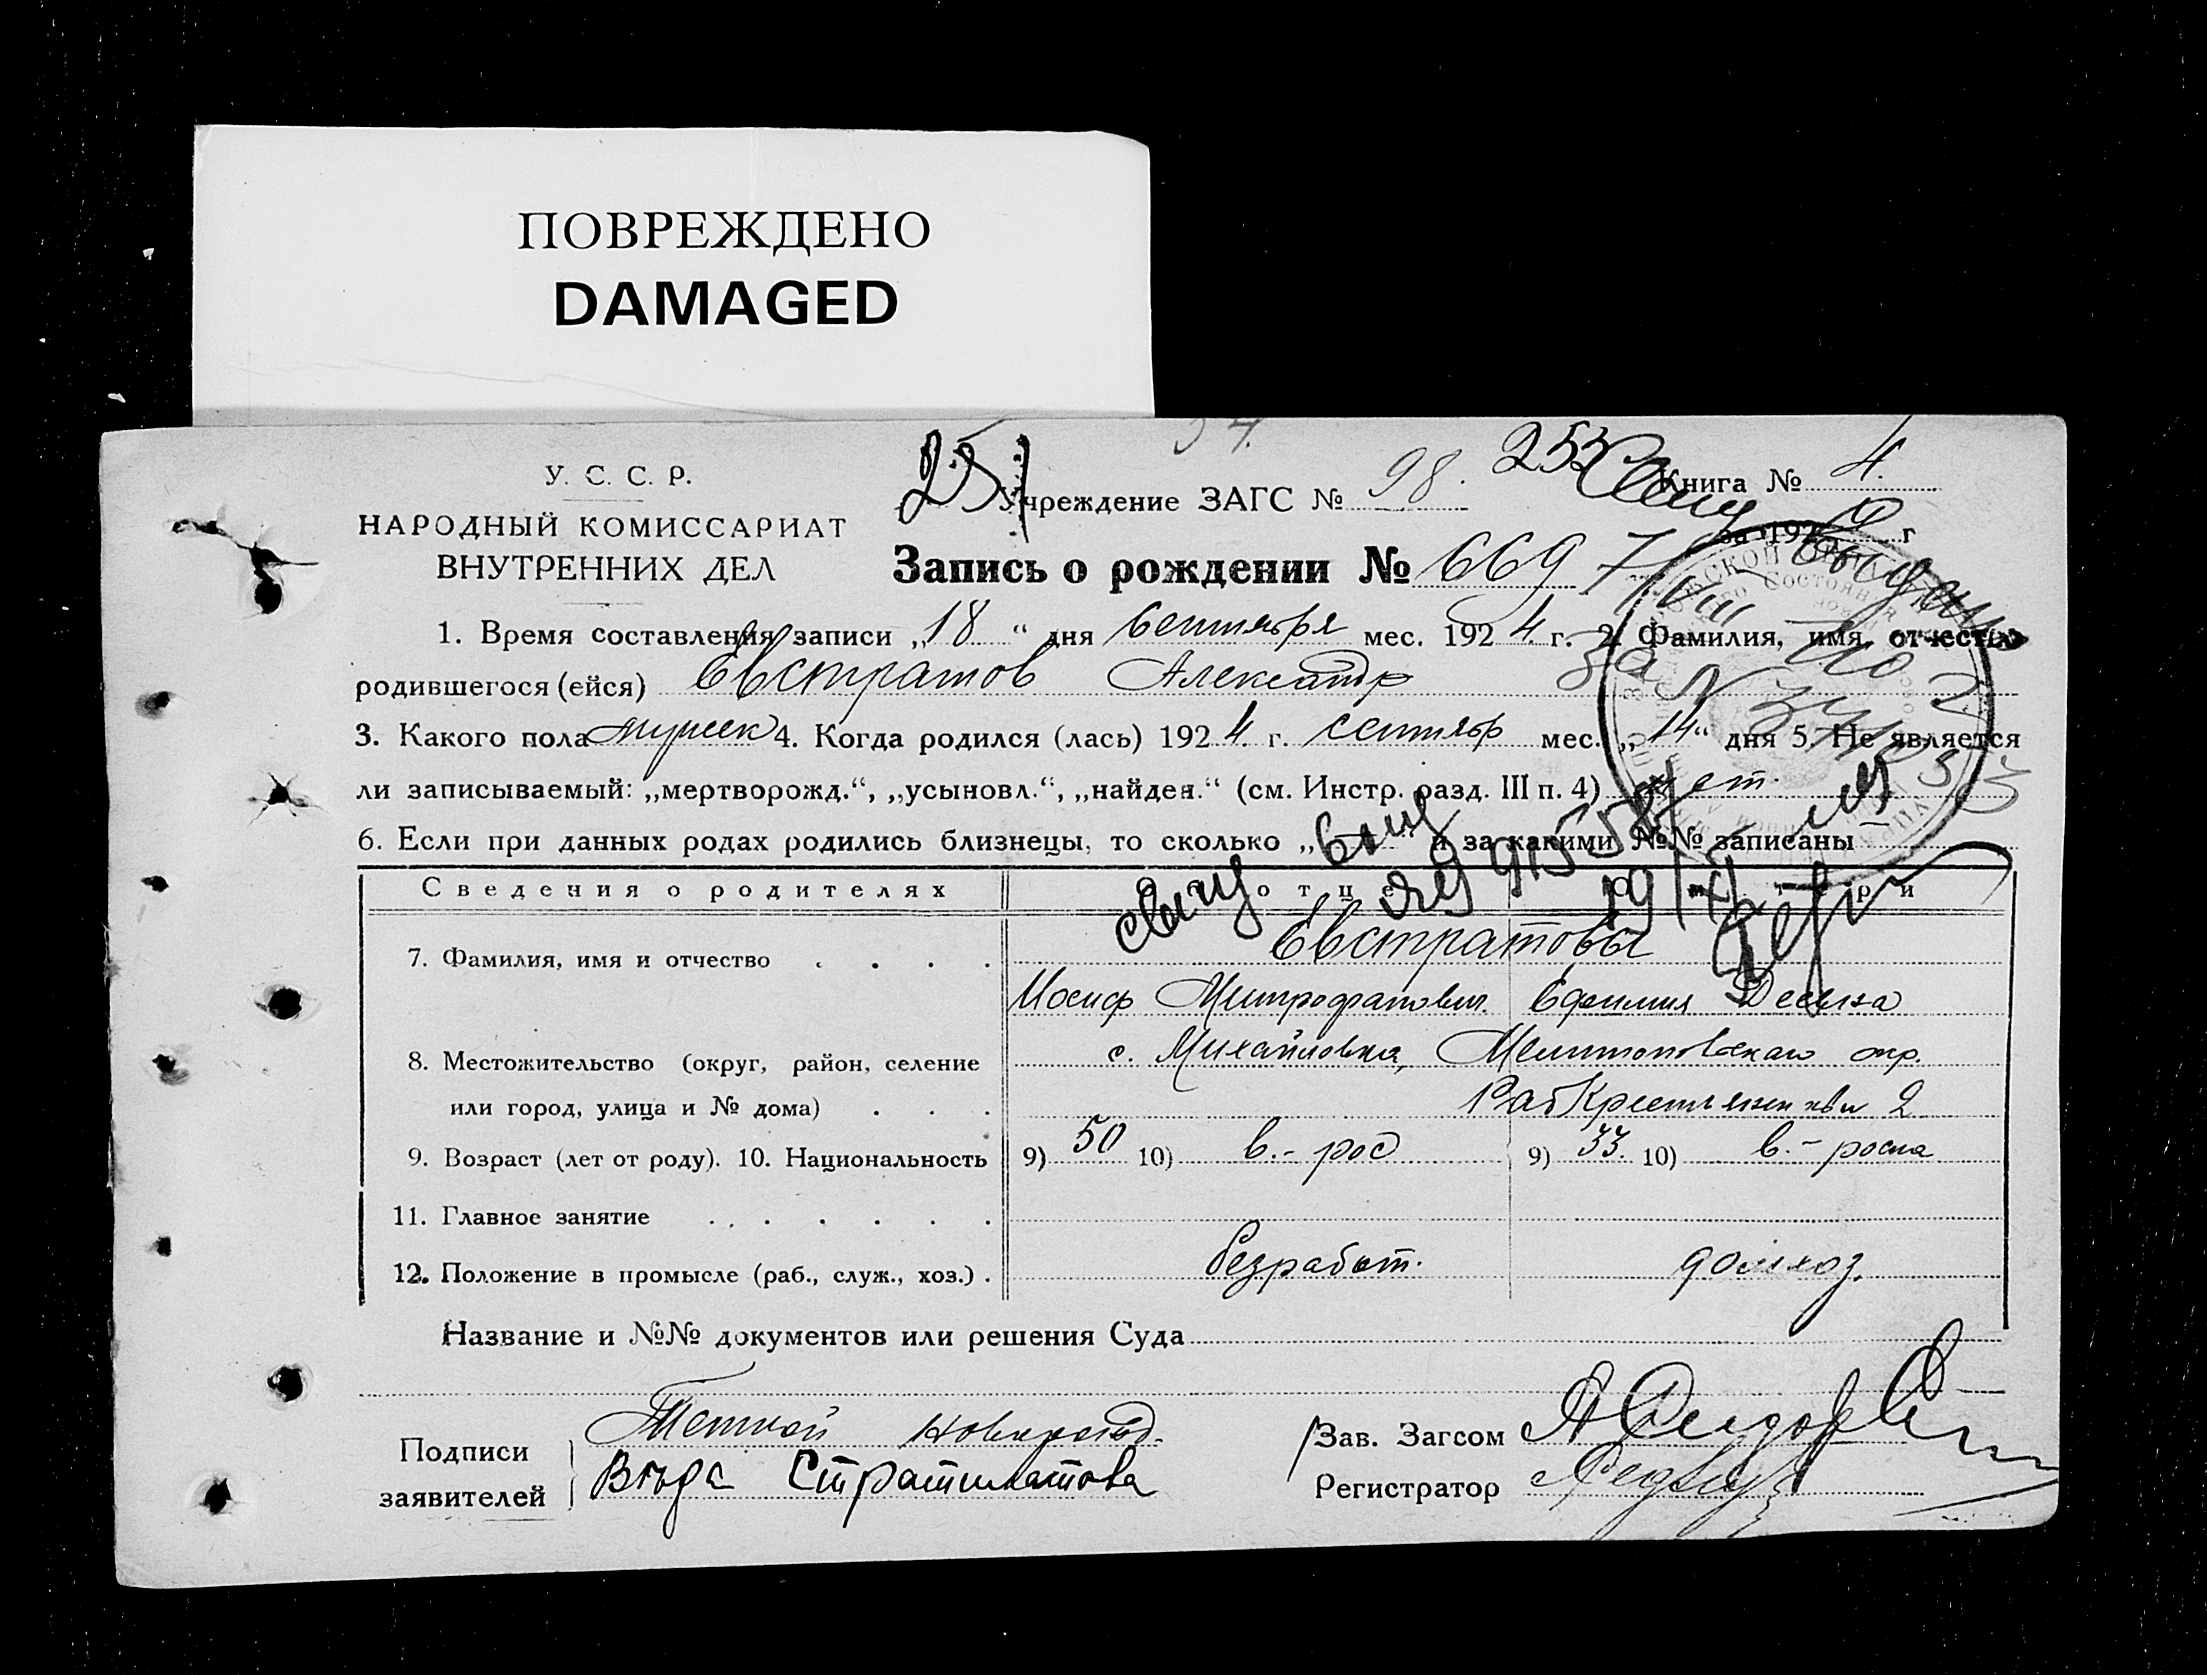 ПОВРЕЖДЕНО
DAMAGED
У. С. С. Р.
НАРОДНЫЙ КОМИССАРИАТ
ВНУТРЕННИХ ДЕЛ
251
Учреждение ЗАГС № 98.
253
Книга № 4.
за 192 г
Запись о рождении № 669
1. Время составления записи „18“ дня Сентября мес. 1924 г. 2. Фамилия, имя, отчество
родившегося (ейся) Евстратов Александр
3. Какого пола мужск 4. Когда родился (лась) 1924 г. сентябр мес. „14“ дня 5. Не является
ли записываемый: „мертворожд.“, „усыновл.“, „найден.“ (см. Инстр. разд. III п. 4) нет.
6. Если при данных родах родились близнецы, то сколько „ “ и за какими №№ записаны
Сведения о родителях О отце О матери
7. Фамилия, имя и отчество . . . . Евстратовы
Иосиф Митрофанович. Ефимия
8. Местожительство (округ, район, селение с. Михайловка, Мелитопольскаго окр.
или город, улица и № дома) . . . 2
9. Возраст (лет от роду). 10. Национальность 9) 50 10) в.-рос 9) 33 10) в.-роска
11. Главное занятие . . . . . .
12. Положение в промысле (раб., служ., хоз.) . безработ. домхоз.
Название и №№ документов или решения Суда
Подписи
заявителей
Стратилатова
Зав. Загсом
Регистратор